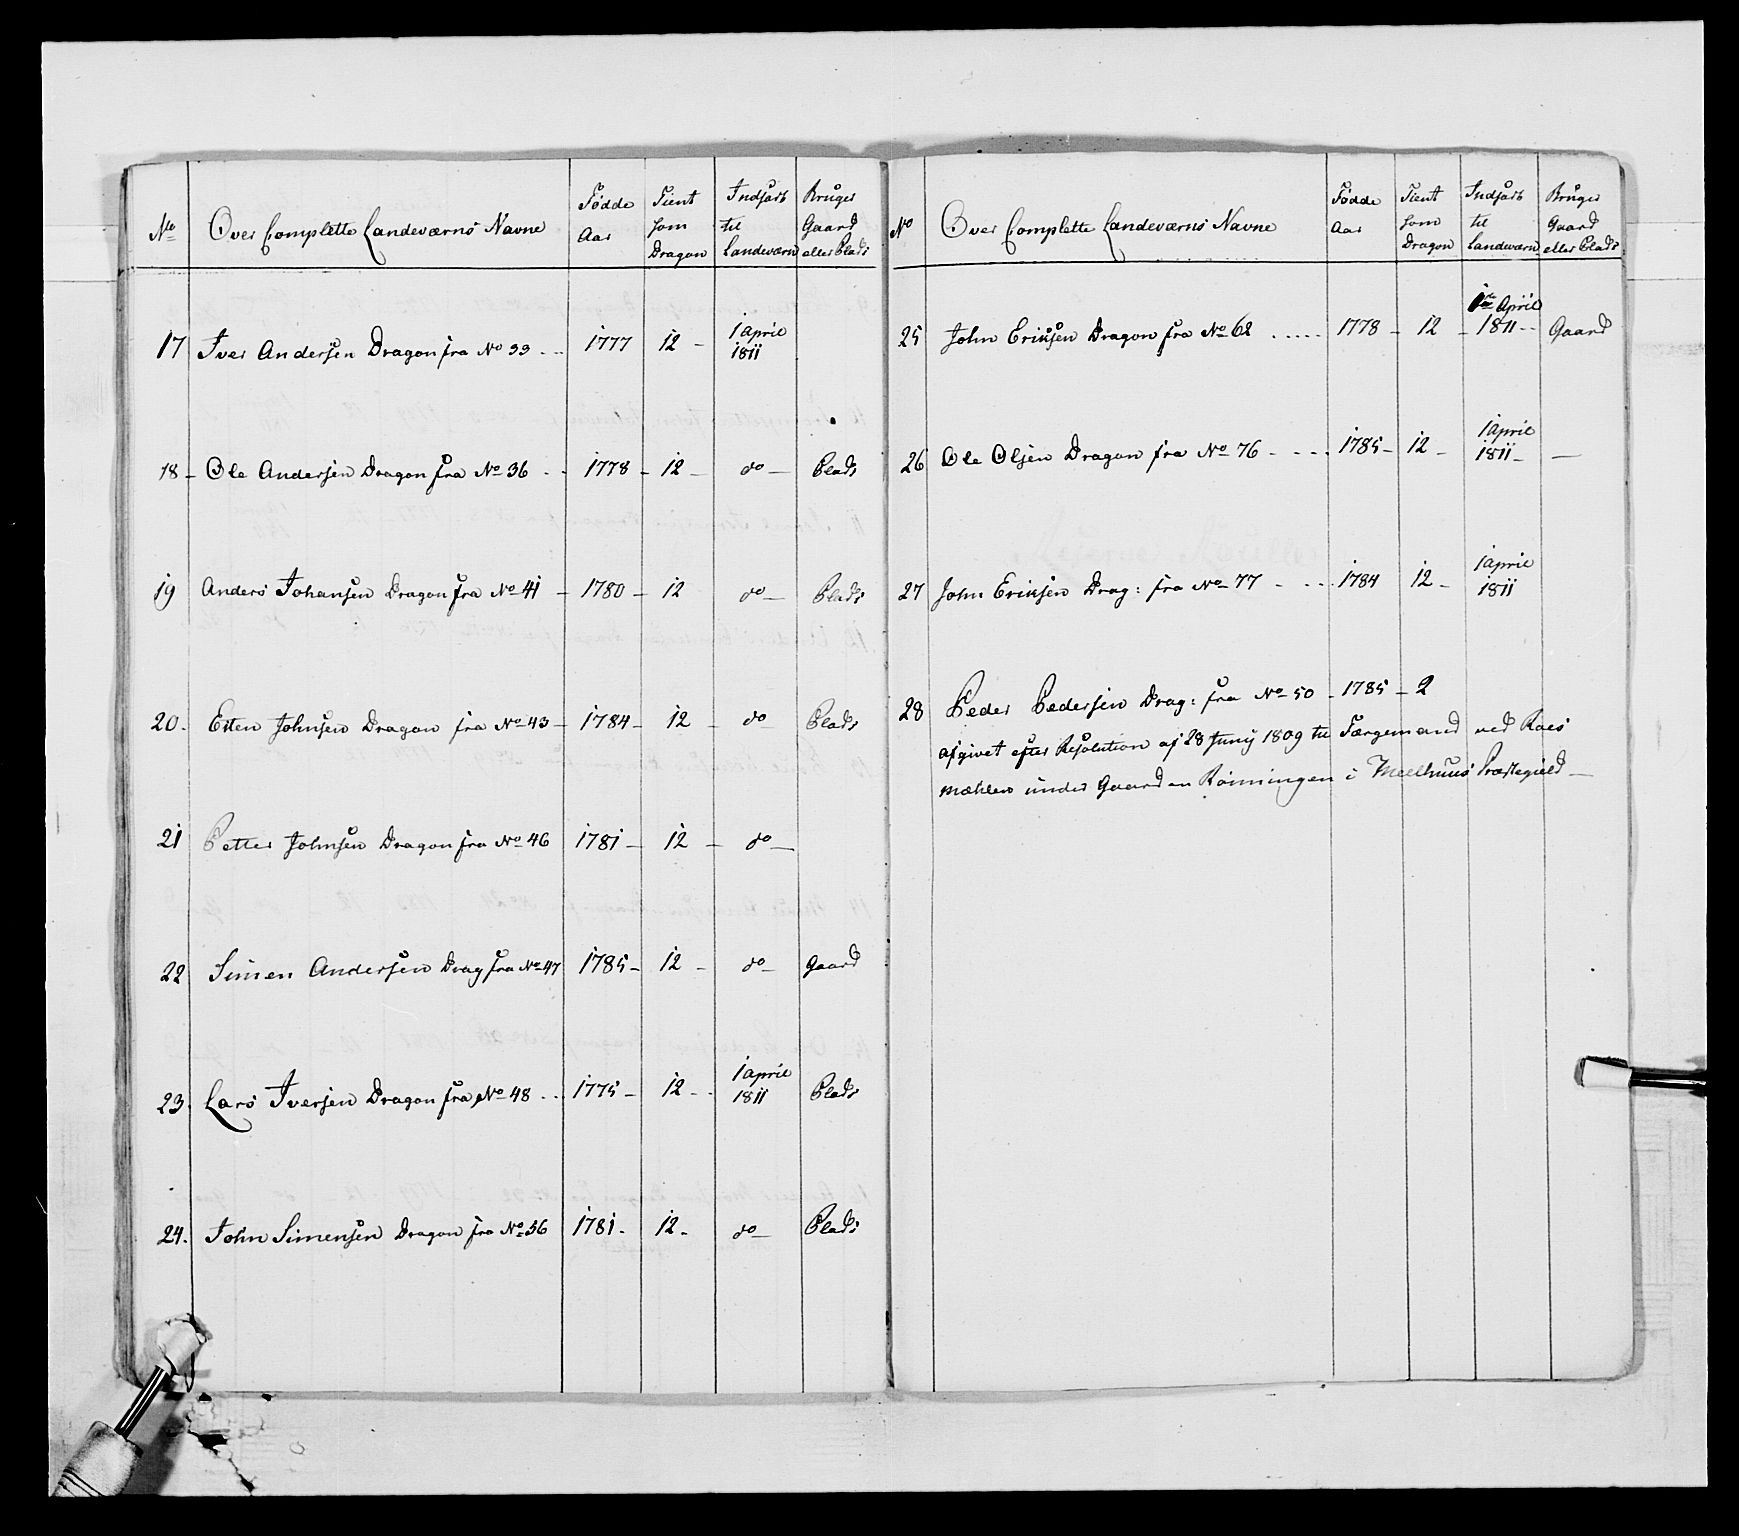 No Over Complette Landeværns Navne Fødde Aar Tient som Dragon Indført til Landeværn Bruger Gaard eller Plads
17 Iver Andersen Dragon fra No 33 1777 12 1 April 1811
18 Ole Andersen Dragon fra No 36 1778 12 do Plads
19 Anders Johansen Dragon fra No 41 1780 12 do Plads
20. Esten Johnsen Dragon fra No 43 1784 12 do Plads
21 Petter Johnsen Dragon fra No 46 1781 12 do
22 Simen Andersen Drag fra No 47 1785 12 do Gaard
23. Lars Iversen Dragon fra No 48 1775 12 1 April 1811 Plads
24. John Simensen Dragon fra No 56 1781 12 do Plads
No Over Complette Landeværns Navne Fødde Aar Tient som Dragon Indført til Landeværn Bruger Gaard eller Plads
25 John Eriksen Dragon fra No 62 1778 12 1te April 1811 Gaard
26 Ole Olsen Dragon fra No 76 1785 12 1 April 1811 —
27 John Eriksen Drag: fra No 77 1784 12 1 April 1811
28 Peder Pedersen Drag: fra No 50 1785 2
afgivet efter Resolution af 28 Juny 1809 til Færgemand ved Roes
mæhlen under Gaarden Rønningen i Meelhuus Præstegield